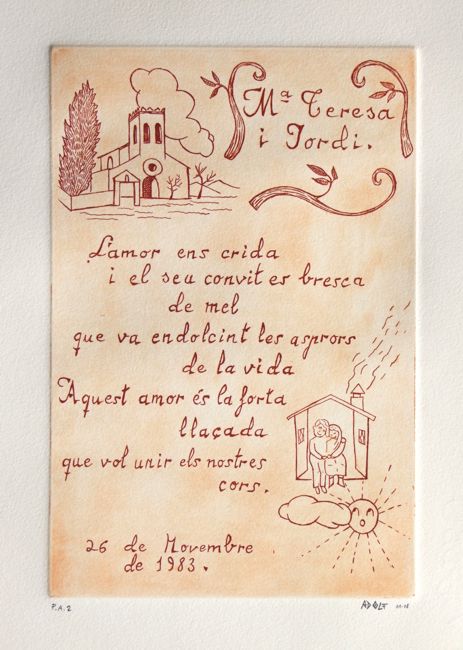 Mª Teresa
i Jordi.
L'amor ens crida
i el seu convit es bresca
de mel
que va endolcint les asprors
de la vida
Aquest amor és la forta
llaçada
que vol unir els nostres
cors.
26 de Novembre
de 1983.
P.A.2